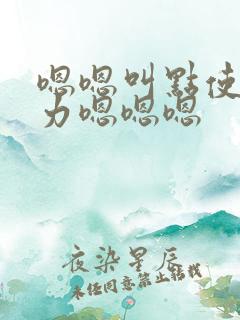 嗯嗯叫點使
力嗯嗯嗯
夜染星辰
未经同意禁止转载